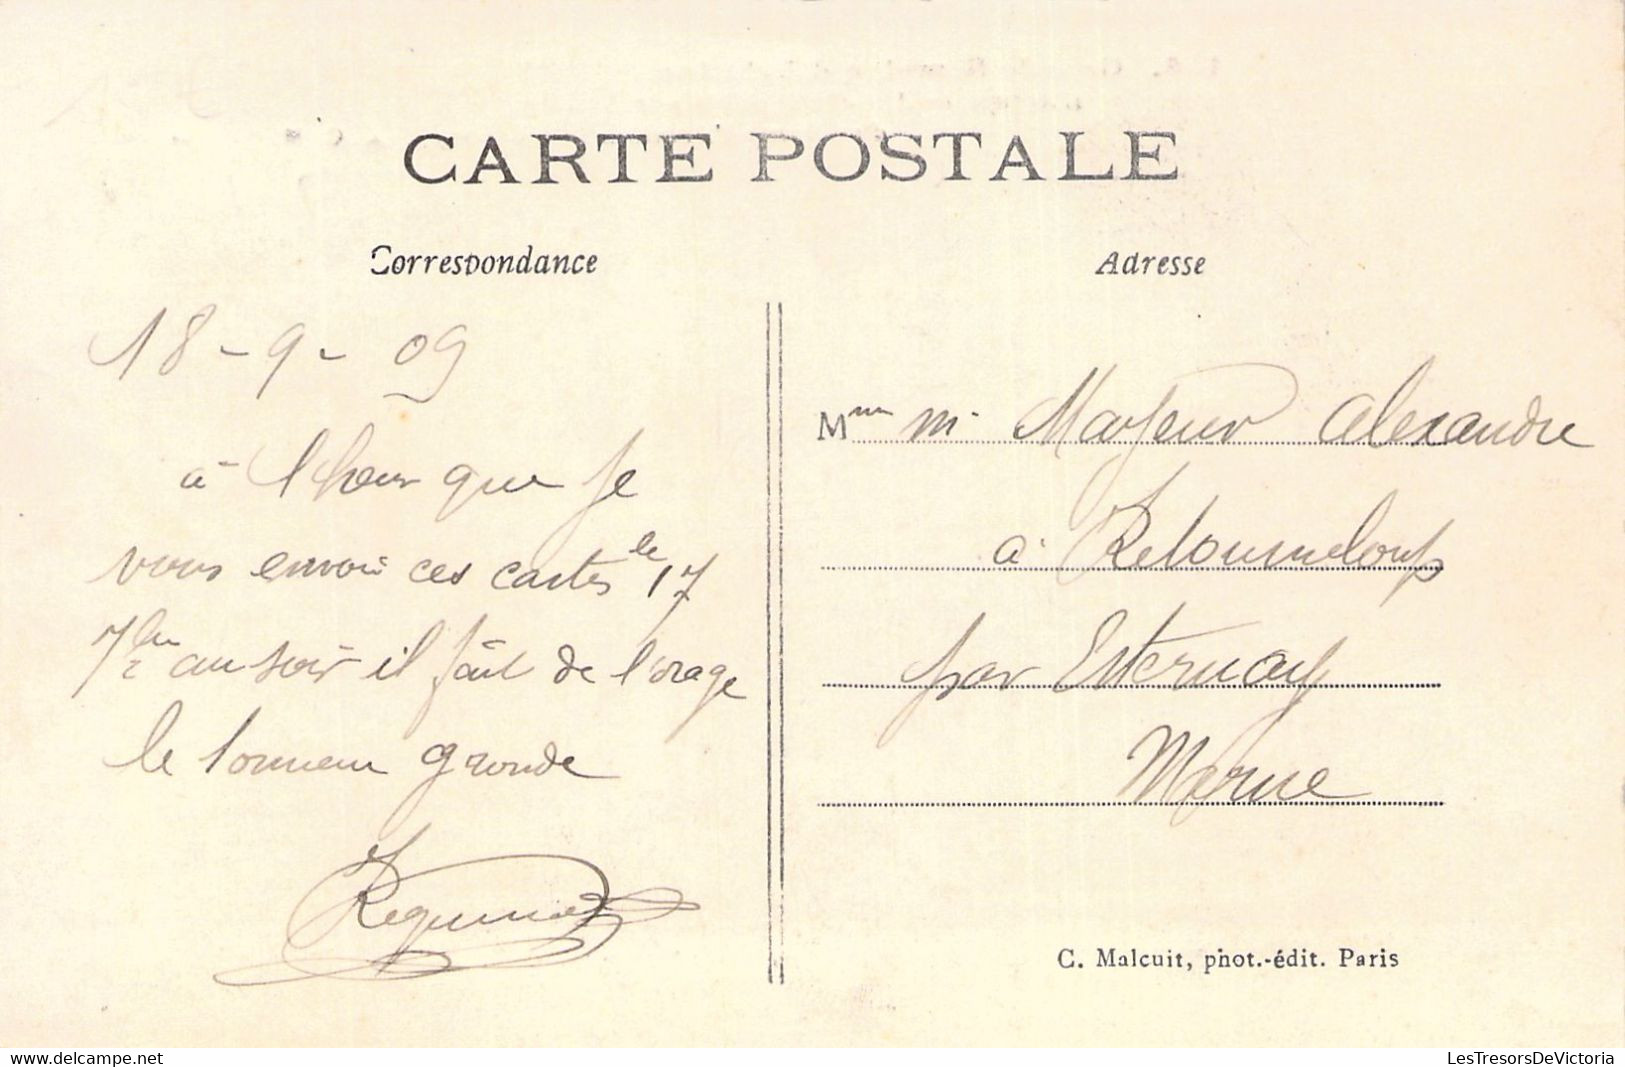 CARTE POSTALE
Correspondance
18-9-09
à l heur que je
vous envoie ces cartes le 17
7bre au soir il fait de l'orage
le tonneur gronde
Adresse
Mme m. Mayeur Alexandre
à Retourneloup
par Esternay
Marne
C. Malcuit, phot.-édit. Paris
delcampe.net
LesTresorsDeVictoria